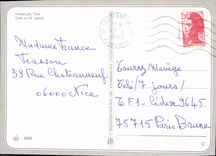 Innsbruck, Tirol
Dom zu St. Jakob
Madame France
Teasson
33 Rue Chateauneuf
06000 Nice
Tournez Manège
Eds/7 jours/
TF1-Cédex 9645
75715 Paris Brune